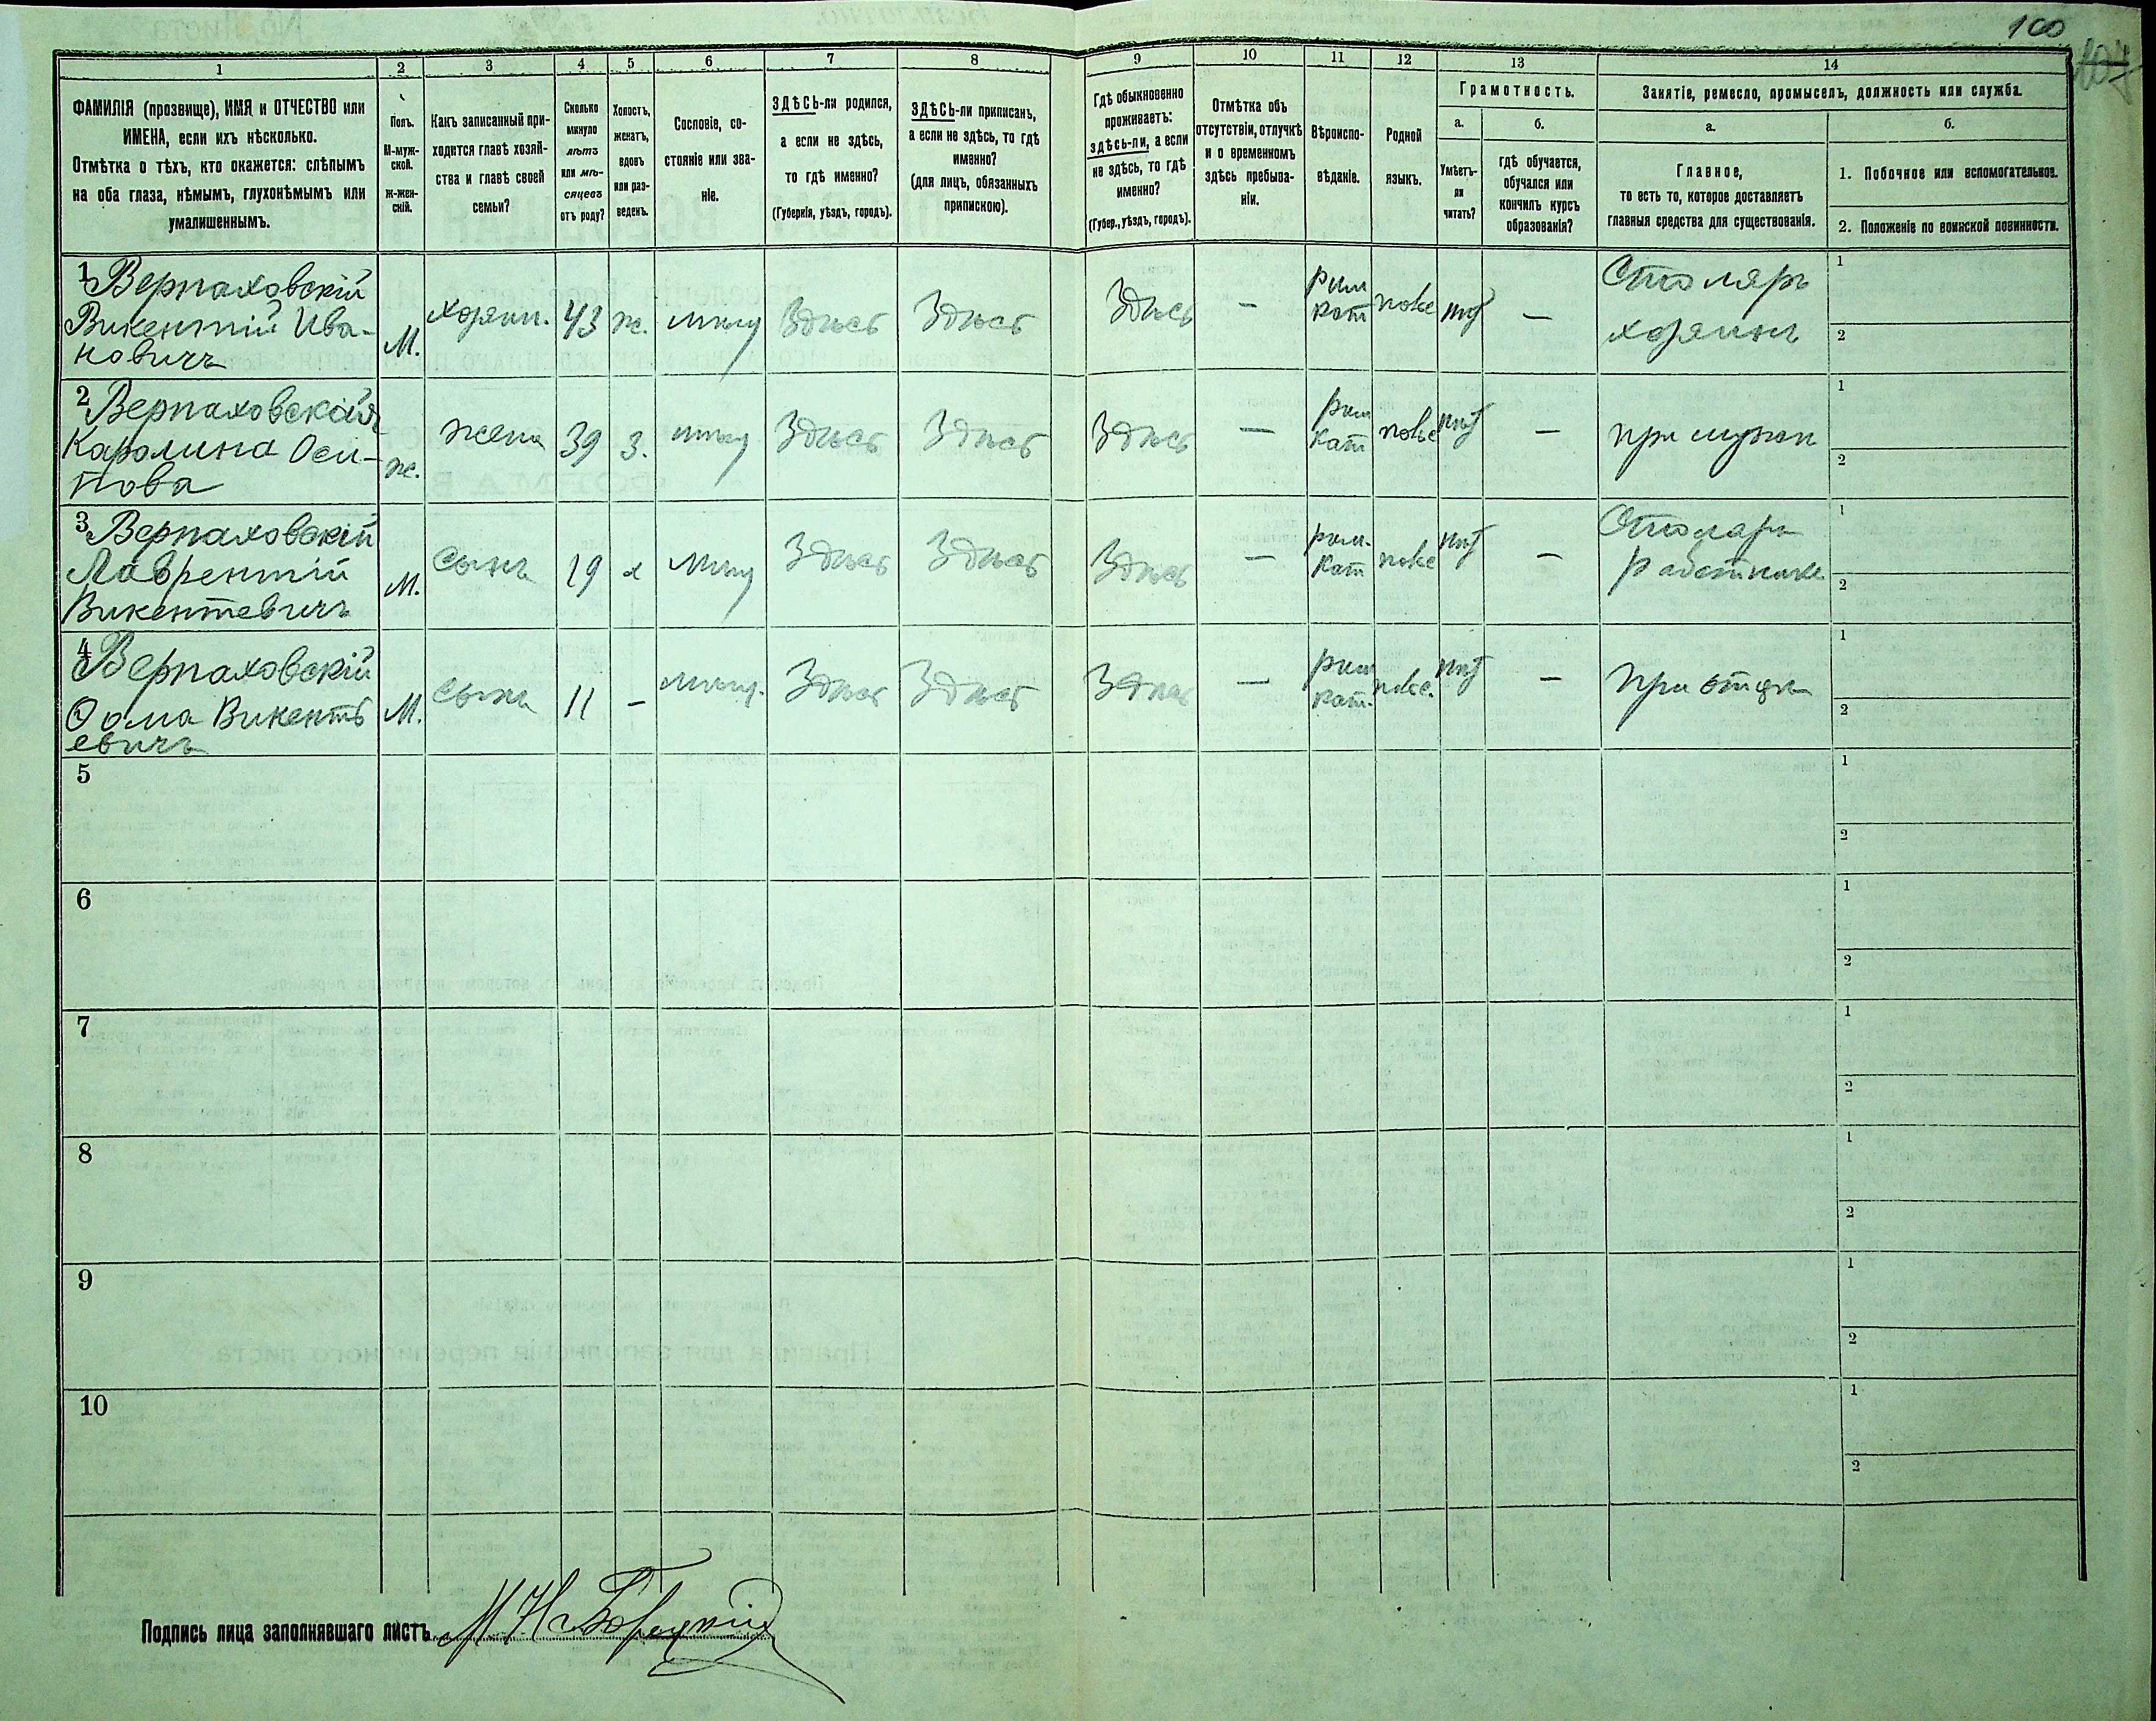 100
1 2 3 4 5 6 7 8 9 10 11 12 13 14
ФАМИЛІЯ (прозвище), ИМЯ и ОТЧЕСТВО или
ИМЕНА, если ихъ нѣсколько.
Отмѣтка о тѣхъ, кто окажется: слѣпымъ
на оба глаза, нѣмымъ, глухонѣмымъ или
умалишеннымъ.
Полъ.
М-муж-
ской.
Ж-жен-
скій.
Какъ записанный при-
ходится главѣ хозяй-
ства и главѣ своей
семьи?
Сколько
минуло
лѣтъ
или мѣ-
сяцевъ
отъ роду?
Холостъ,
женатъ,
вдовъ
или раз-
веденъ.
Сословіе, со-
стояніе или зва-
ніе.
ЗДѢСЬ-ли родился,
а если не здѣсь,
то гдѣ именно?
(Губернія, уѣздъ, городъ).
ЗДѢСЬ-ли приписанъ,
а если не здѣсь, то гдѣ
именно?
(для лицъ, обязанныхъ
припискою).
Гдѣ обыкновенно
проживаетъ:
здѣсь-ли, а если
не здѣсь, то гдѣ
именно?
(Губер., уѣздъ, городъ).
Отмѣтка объ
отсутствіи, отлучкѣ
и о временномъ
здѣсь пребыва-
ніи.
Вѣроиспо-
вѣданіе.
Родной
языкъ.
Грамотность.
а.
Умѣетъ-
ли
читать?
б.
гдѣ обучается,
обучался или
кончилъ курсъ
образованія?
Занятіе, ремесло, промыселъ, должность или служба.
а.
Главное,
то есть то, которое доставляетъ
главныя средства для существованія.
б.
1. Побочное или вспомогательное.
2. Положеніе по воинской повинности.
1 Верпаховскій
Викентій Ива-
новичъ
М. хозяин. 43 ж. мѣщ Здѣсь Здѣсь Здѣсь — рим
кат польс нѣт — Столяръ
хозяинъ
1
2
2 Верпаховская
Каролина Оси-
пова
ж. жена 39 з. мѣщ Здѣсь Здѣсь Здѣсь — рим
кат польс нѣт — при мужѣ
1
2
3 Верпаховскій
Лаврентій
Викентевичъ
М. сынъ 19 х мѣщ Здѣсь Здѣсь Здѣсь — рим.
кат польс нѣт — Столяръ
Работникъ
1
2
4 Верпаховскій
Ѳома Викенть
евичъ
М. сынъ 11 – мѣщ. Здѣсь Здѣсь Здѣсь — рим
кат. польс. нѣт — при отцѣ
1
2
5
1
2
6
1
2
7
1
2
8
1
2
9
1
2
10
1
2
Подпись лица заполнявшаго листъ